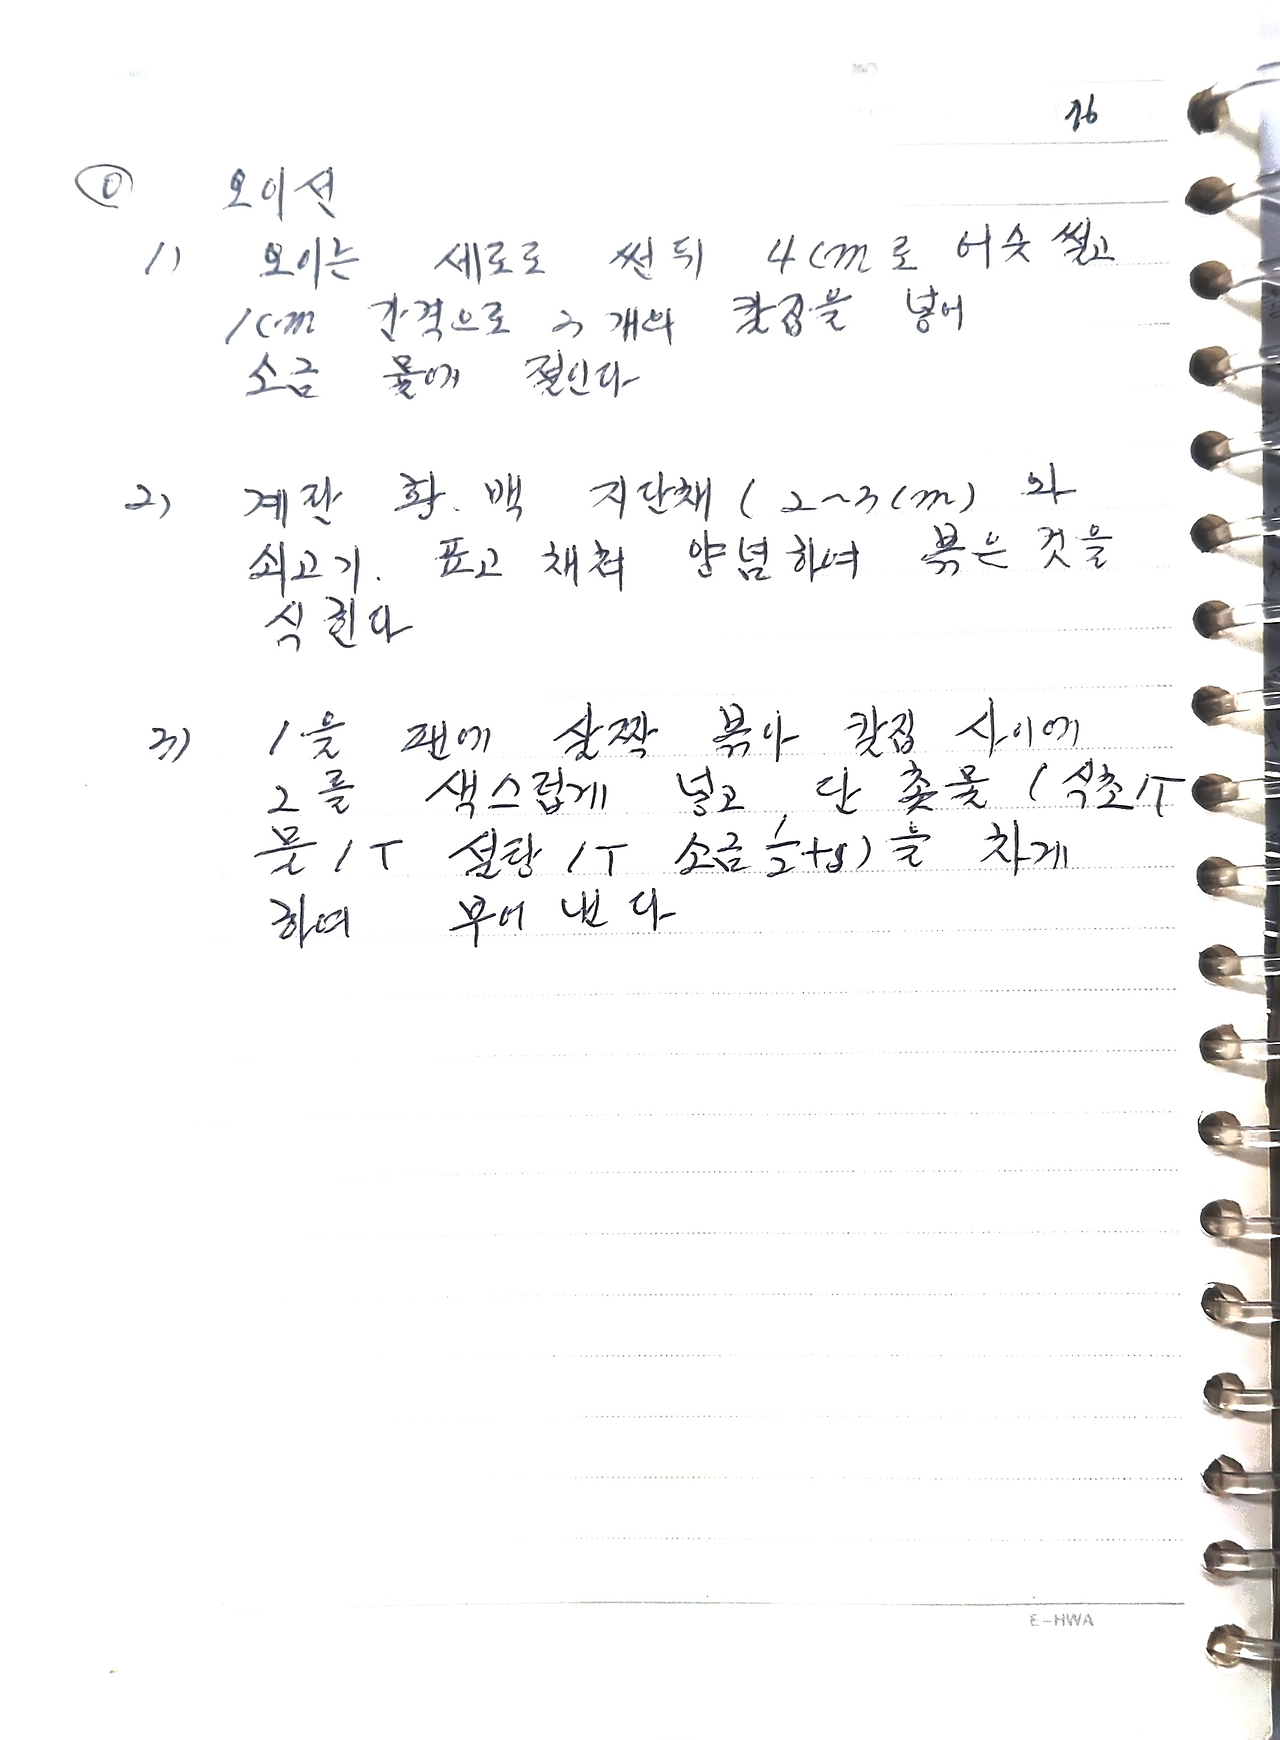 76
⓪ 오이선
1) 오이는 세로로 썬뒤 4cm로 어슷썰고
1cm 간격으로 3개의 칼집을 넣어
소금 물에 절인다
2) 계란 황.백 지단채 (2~3cm) 와
쇠고기. 표고 채쳐 양념하여 볶은것을
식힌다
3) 1을 팬에 살짝 볶아 칼집 사이에
2를 색스럽게 넣고 단촛물 (식초1T
물1T 설탕1T 소금 1/2ts)을 차게
하여 부어낸다
E-HWA